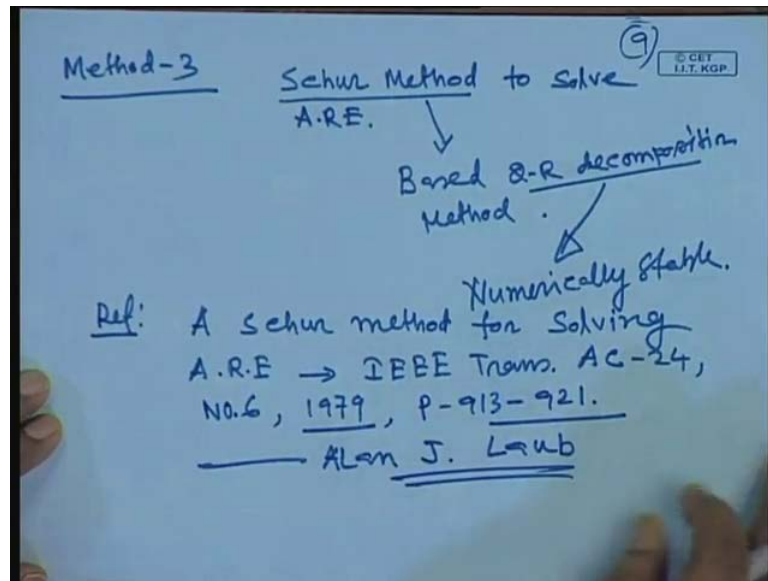 9
© CET
I.I.T. KGP
Method-3 Schur Method to solve
A.R.E.
Based Q-R decomposition
Method.
Numerically stable.
Ref: A schur method for solving
A.R.E → IEEE Trans. AC-24,
NO.6, 1979, P-913-921.
Alan J. Laub